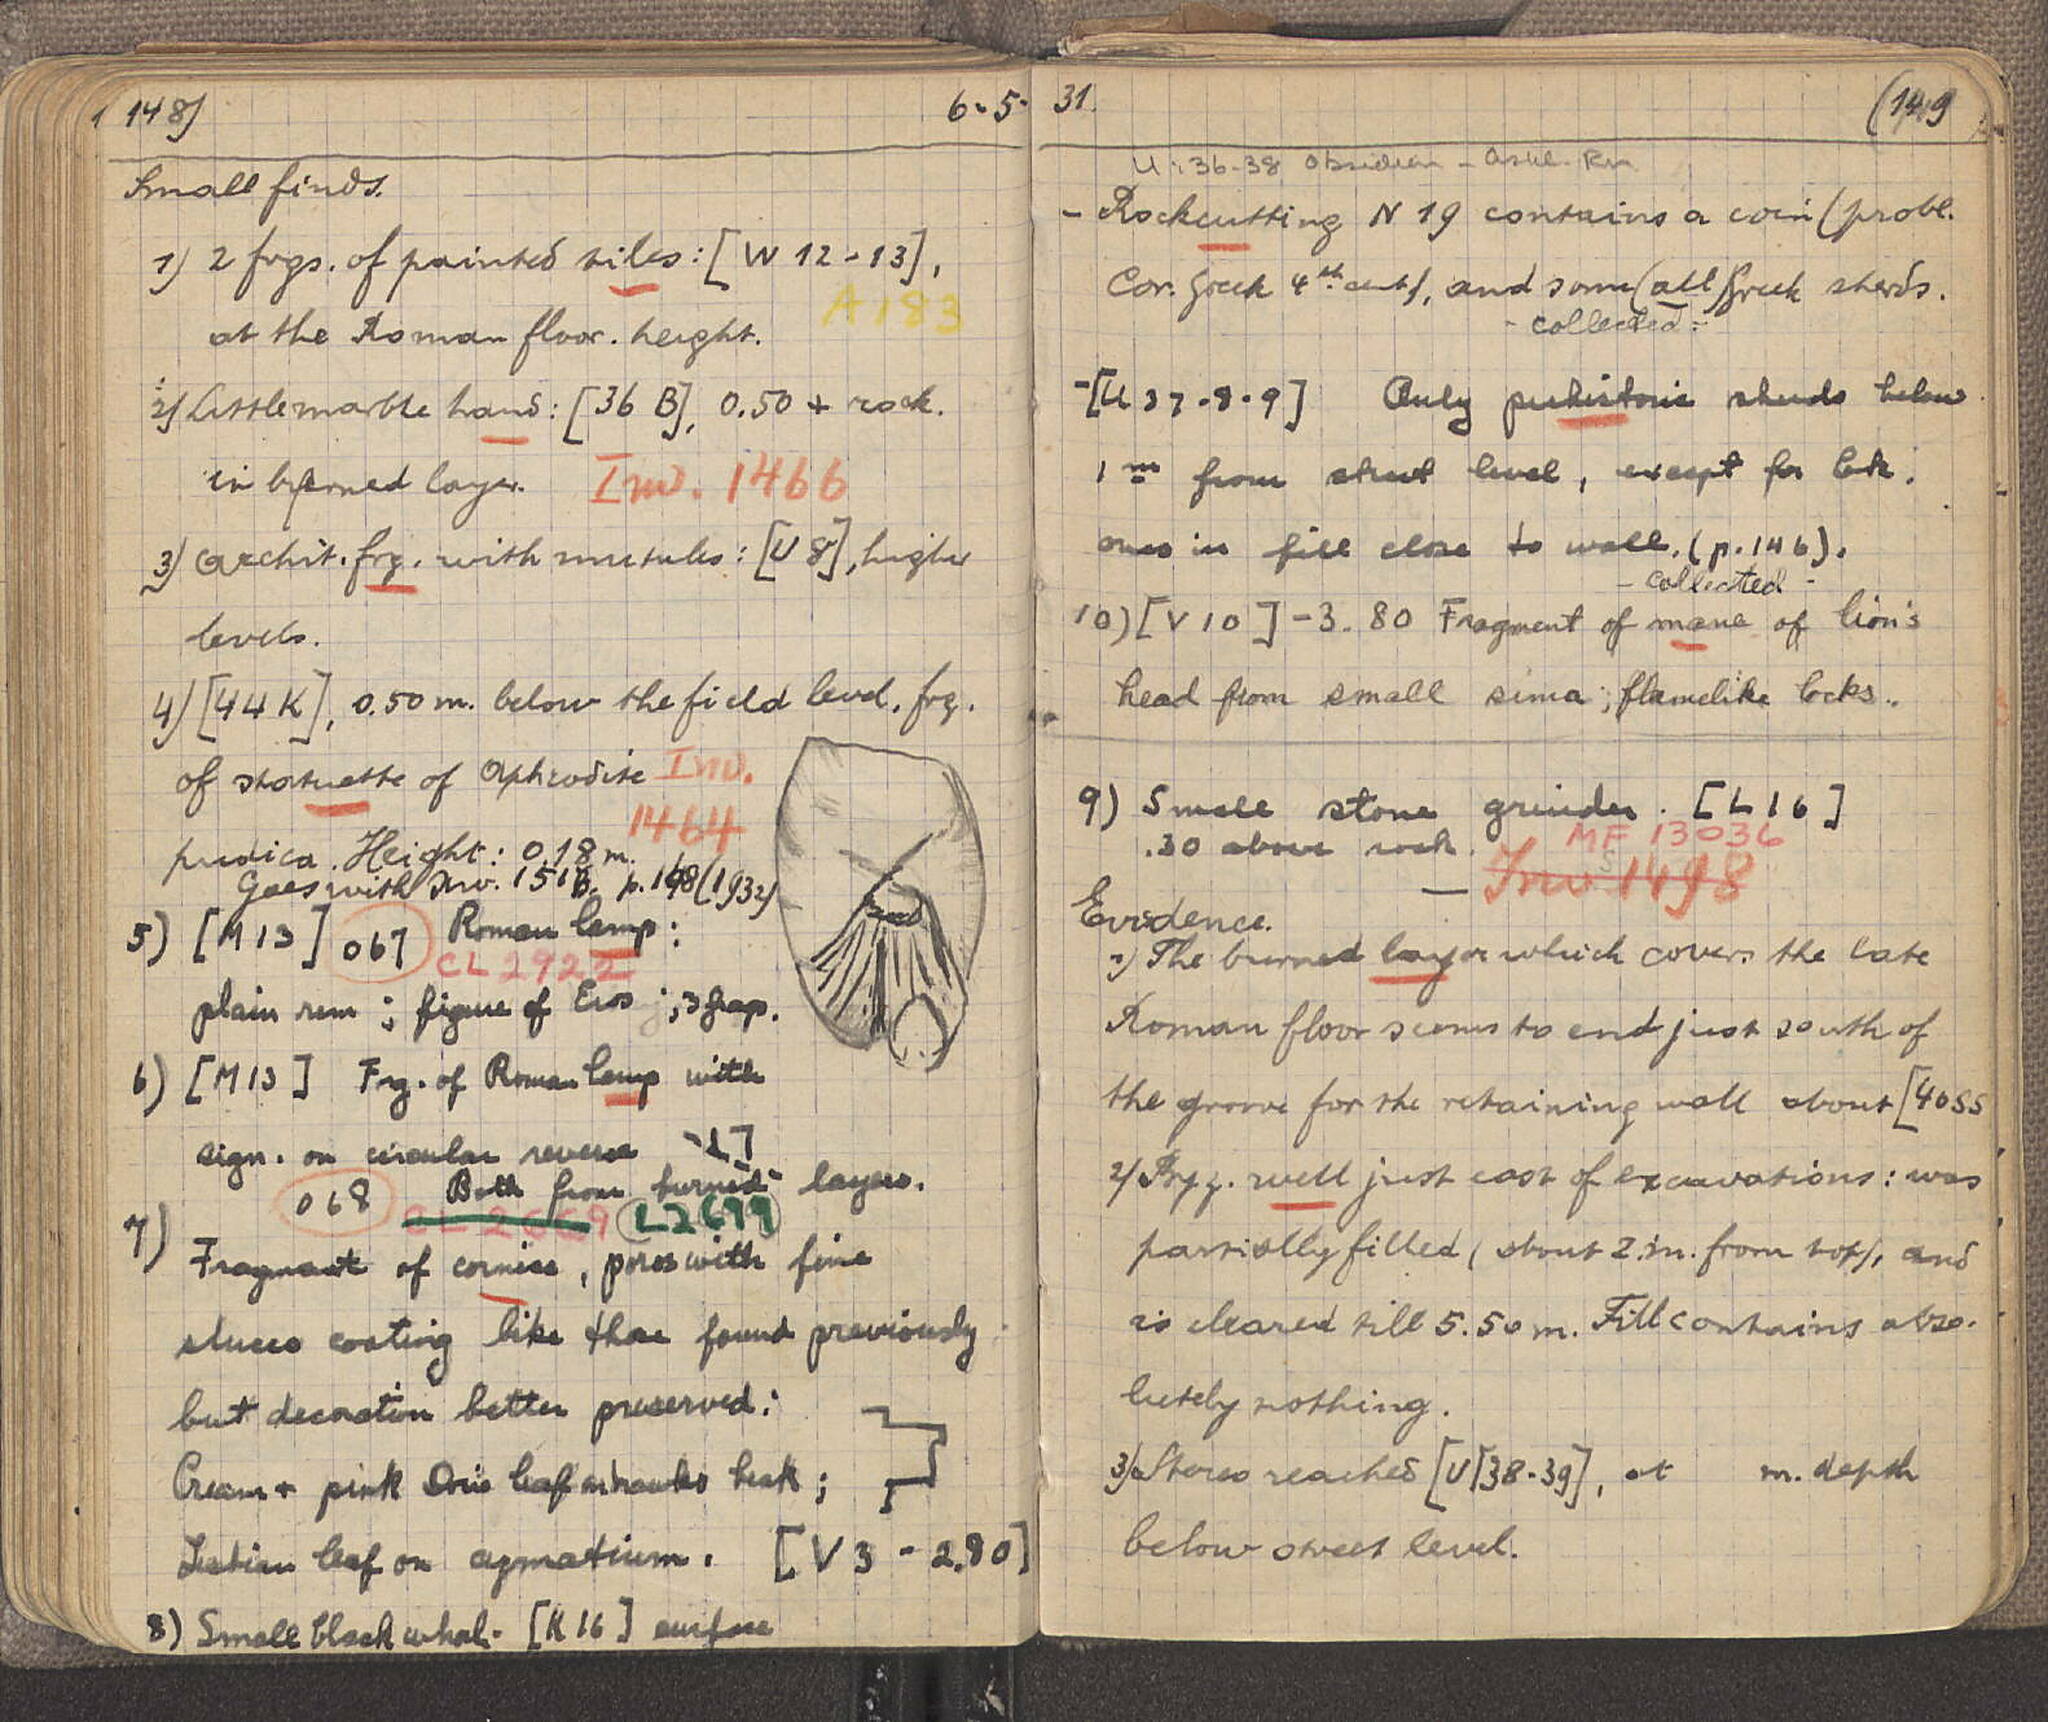 148)
6-5-
Small finds.
1) 2 frgs. of painted tiles: [W 12-13],
A 183
at the Roman floor. height.
2) Little marble hand: [36 B], 0.50 + rock.
in burned layer. Inv. 1466
3) archit. frg. with mutules: [U 8], higher
levels.
4) [44 K], 0.50 m. below the field level, frg.
of statuette of Aphrodite Inv.
1464
pudica. Height: 0.18 m.
Goes with Inv. 1518. p. 168 (1932)
5) [M13] 067 Roman lamp:
CL 2922
plain rim; figure of Eros; 3 frags.
6) [M13] Frg. of Roman lamp with
sign. on circular reverse
068 Both from burned layers.
CL 2669 L2699
7)
Fragment of cornice, poros with fine
stucco coating like those found previously
but decoration better preserved:
Cream + pink Doric leaf on hawks beak;
Lesbian leaf on cymatium. [V 3 - 2.80]
8) Small black whorl. [K 16] surface
31.
(149
U:36-38 Obsidian -
- Rockcutting N 19 contains a coin (probl.
Cor. Greek 4th cent), and some (all) Greek sherds.
- collected -
- [U 37-8-9] Only prehistoric sherds below
1 m from street level, except for
ones in fill close to wall. (p. 146).
- collected -
10) [V 10] -3.80 Fragment of mane of lion's
head from small sima; flamelike locks.
9) Small stone grinder. [L 16]
MF 13036
.30 above rock.
- Inv 1498
Evidence.
1) The burned layer which covers the late
Roman floor seems to end just south of
the groove for the retaining wall about [40 SS
2) Byz. well just east of excavations: was
partially filled (about 2.m. from top), and
is cleared till 5.50 m. Fill contains abso-
lutely nothing.
3) Stereo reached [U 38-39], at m. depth
below street level.